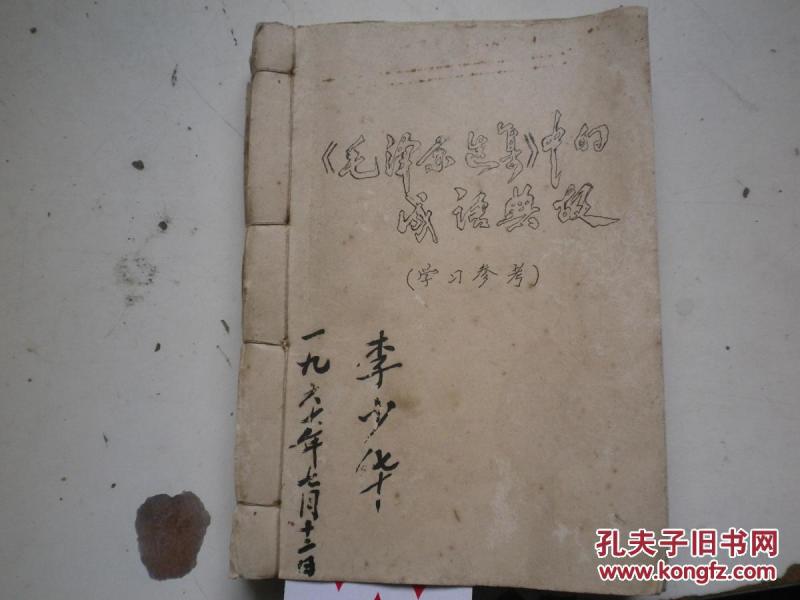 《毛泽东选集》中的
成语典故
(学习参考)
李少华
一九六年七月十二日
孔夫子旧书网
www.kongfz.com